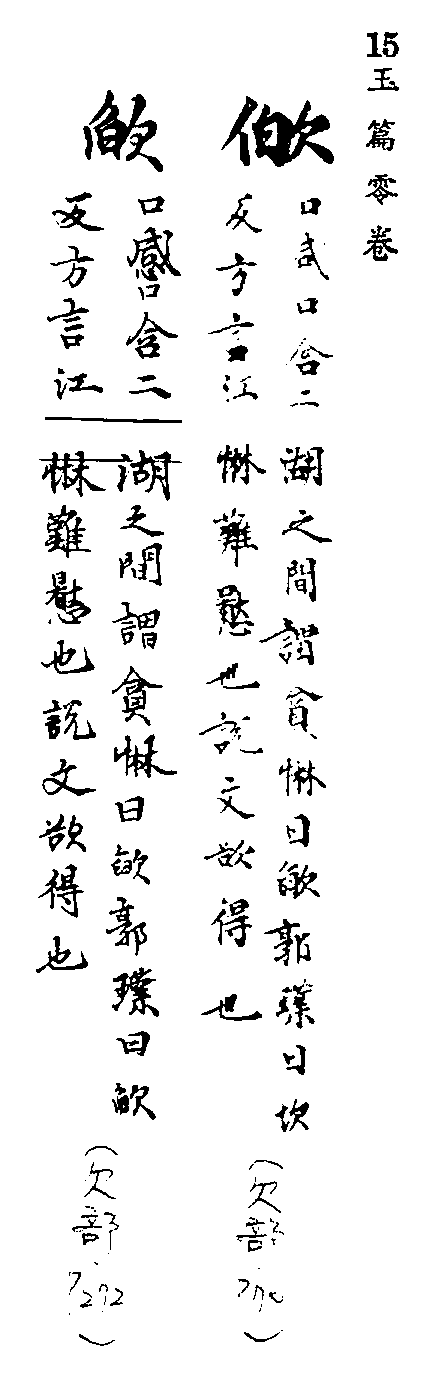 15 玉篇零卷
欿
口口含二
反方言江
湖之間謂貪惏曰欿郭璞曰坎
惏難也說文欲得也
(欠部
欿
口感口含二
反方言江
湖之間謂貪惏曰欿郭璞曰欿
惏難也說文欲得也
(欠部